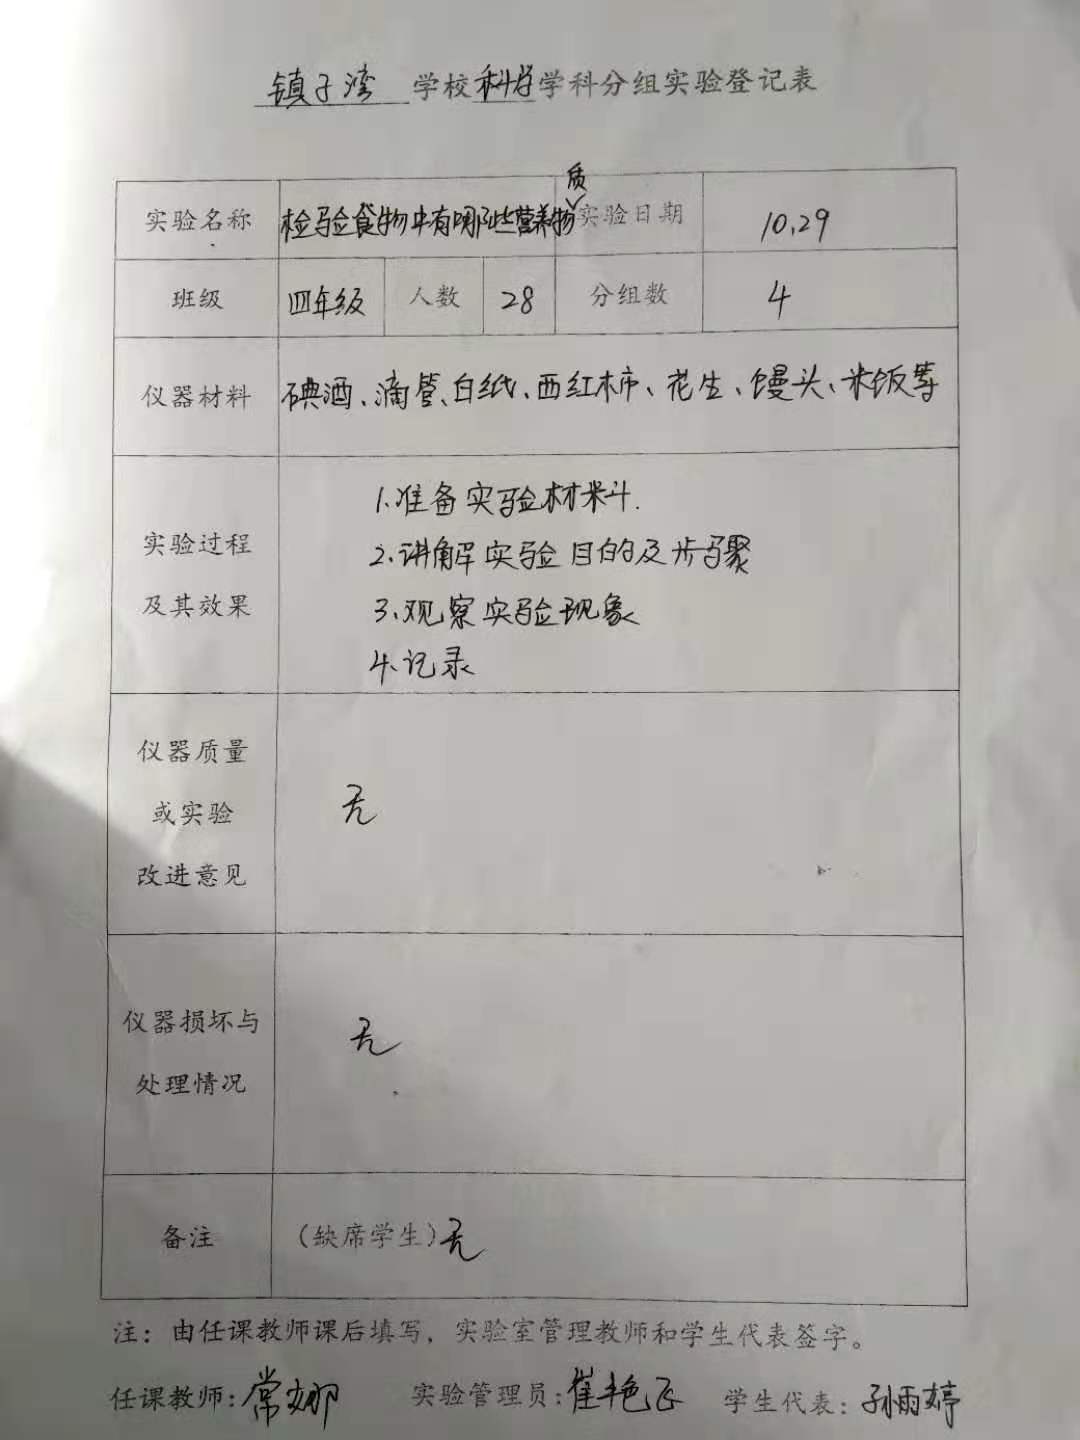 镇子湾学校科学学科分组实验登记表
实验名称 检验食物中有哪些营养物质 实验日期 10.29
班级 四年级 人数 28 分组数 4
仪器材料 碘酒、滴管、白纸、西红柿、花生、馒头、米饭等
实验过程
及其效果
1.准备实验材料.
2.讲解实验目的及步骤
3.观察实验现象
4.记录
仪器质量
或实验
改进意见
无
仪器损坏与
处理情况
无
备注 (缺席学生)无
注:由任课教师课后填写,实验室管理教师和学生代表签字。
任课教师:常娜 实验管理员:崔艳飞 学生代表:孙雨婷